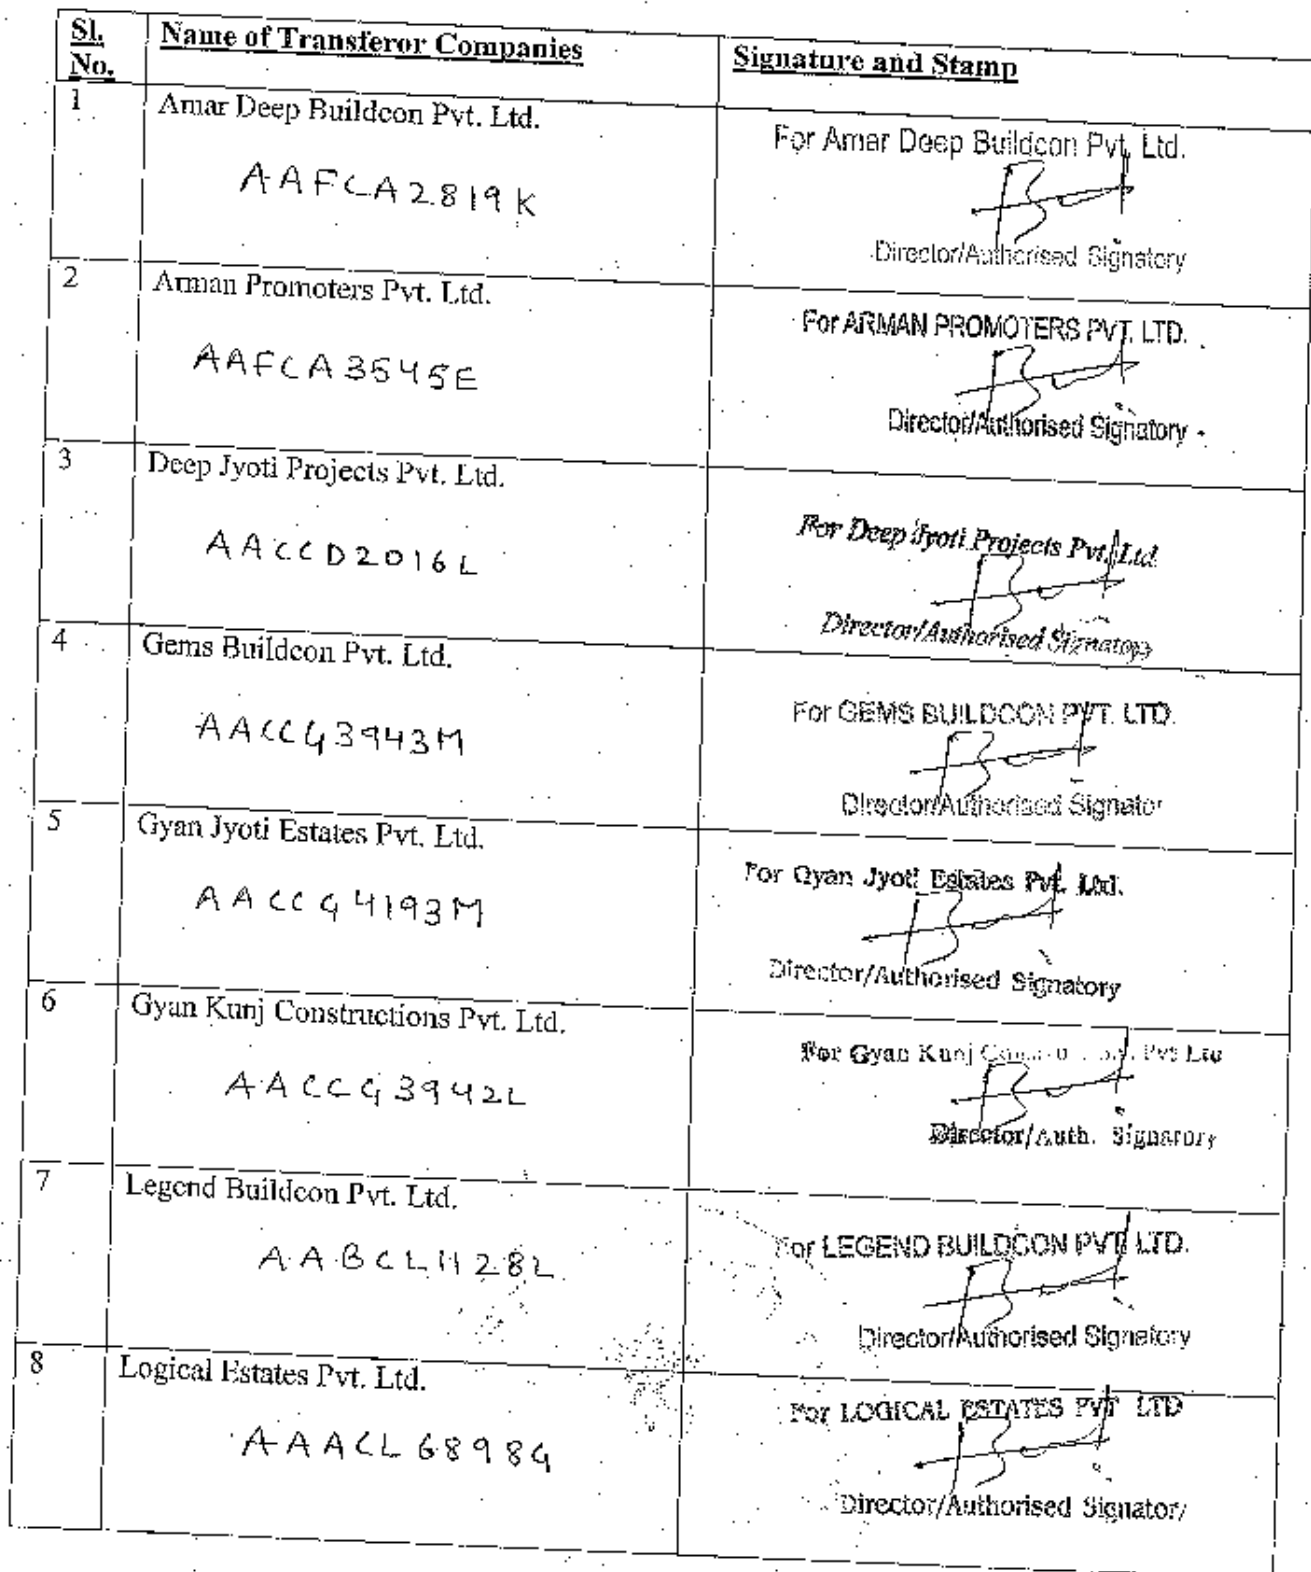 Sl. No. Name of Transferor Companies Signature and Stamp
1 Amar Deep Buildcon Pvt. Ltd.
AAFCA2819K
For Amar Deep Buildcon Pvt. Ltd.
Director/Authorised Signatory
2 Arman Promoters Pvt. Ltd.
AAFCA3545E
For ARMAN PROMOTERS PVT. LTD.
Director/Authorised Signatory
3 Deep Jyoti Projects Pvt. Ltd.
AACCD2016L
For Deep Jyoti Projects Pvt. Ltd
Director/Authorised Signatory
4 Gems Buildcon Pvt. Ltd.
AACCG3943M
For GEMS BUILDCON PVT. LTD.
Director/Authorised Signator
5 Gyan Jyoti Estates Pvt. Ltd.
AACCG4193M
For Gyan Jyoti Estates Pvt. Ltd.
Director/Authorised Signatory
6 Gyan Kunj Constructions Pvt. Ltd.
AACCG3942L
For Gyan Kunj Pvt Ltd
Director/Auth. Signatory
7 Legend Buildcon Pvt. Ltd.
AABCL1128L
For LEGEND BUILDCON PVT. LTD.
Director/Authorised Signatory
8 Logical Estates Pvt. Ltd.
AAACL6898G
For LOGICAL ESTATES PVT LTD
Director/Authorised Signator/